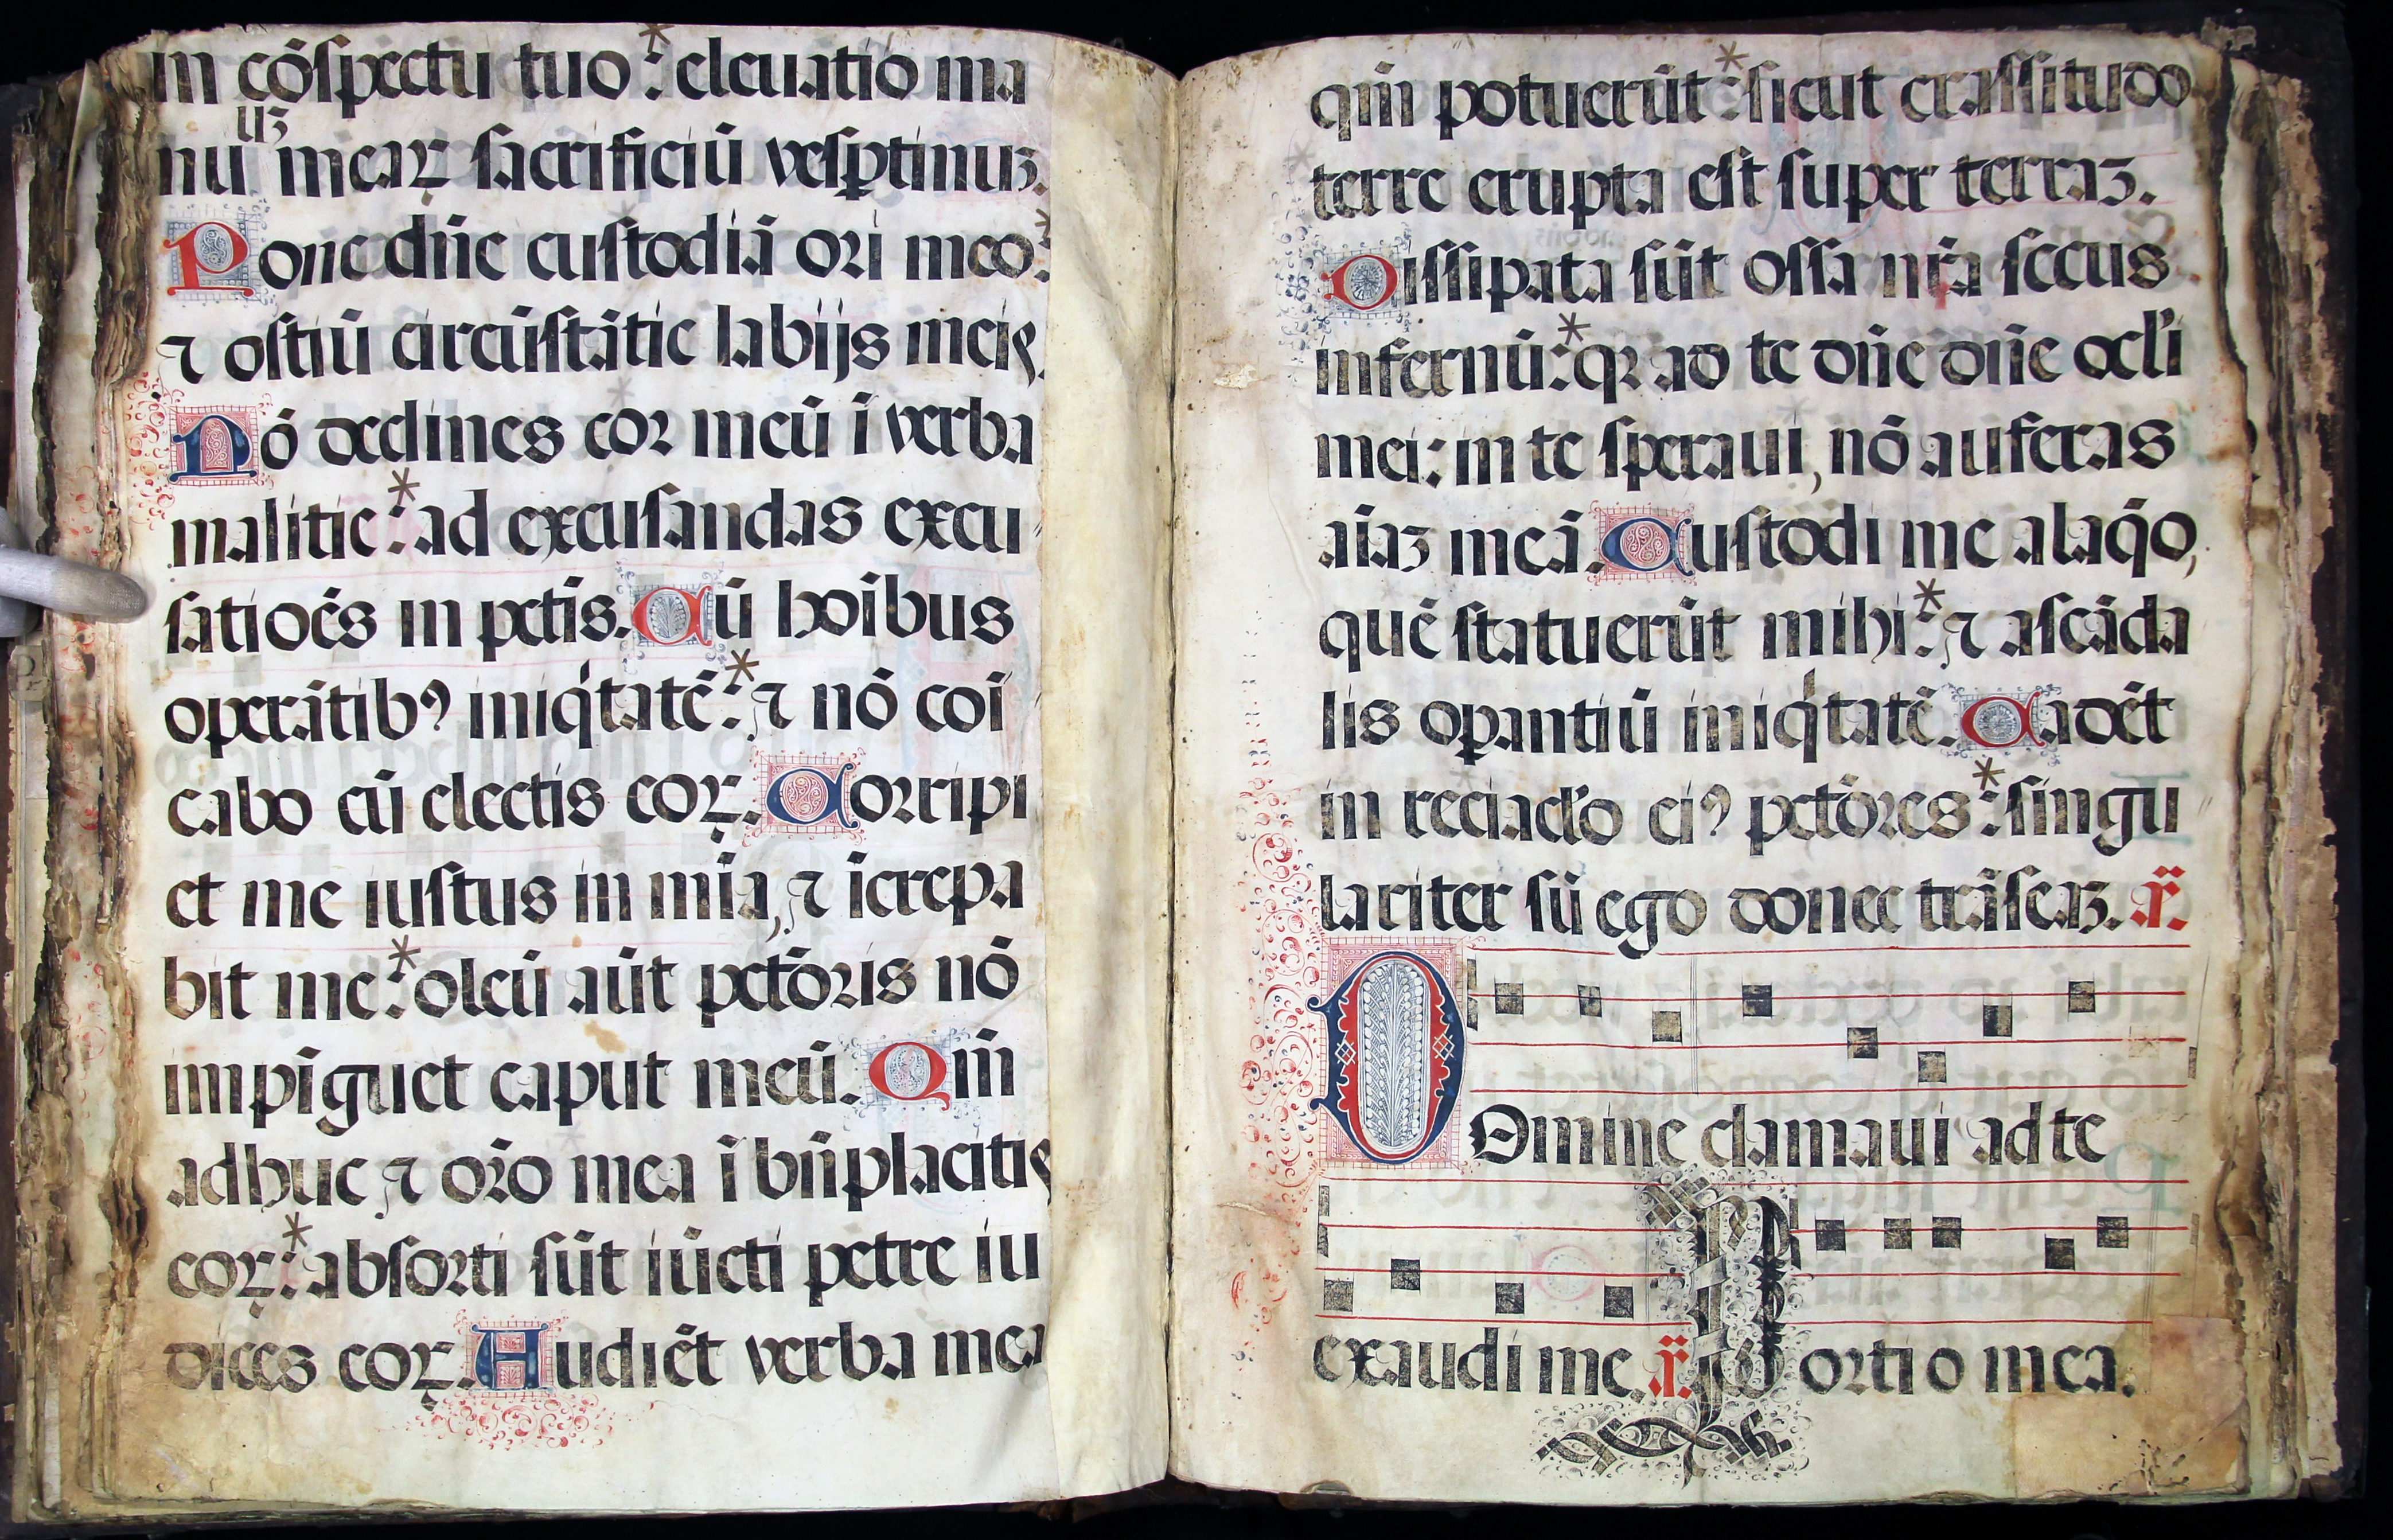 in cōſpectu tuo:* eleuatio ma
nuuꝫ meaꝝ ſacrificiū veſꝑtinuꝫ.
Pone dn̄e cuſtodiā ori meo:*
⁊ oſtiū circūſtātie labijs meis.
Nō declines cor meū ī verba
malitie:* ad excuſandas excu
ſatiōēs in pctīs. Cū hoībus
operātibꝰ iniq̇tatē:* ⁊ nō cōi
cabo cū electis eoꝝ. Corripi
et me iuſtus in mīa, ⁊ īcrepa
bit me:* oleū aūt pctōris nō
impīguet caput meū. Qm̄
adhuc ⁊ orō mea ī bn̄placitis
eoꝝ:* abſorti ſūt iūcti petre iu
dices eoꝝ. Audiēt verba mea
qm̄ potuerūt:* ſicut craſſitudo
terre erupta eſt ſuper terraꝫ.
Diſſipata ſūt oſſa nr̄a ſecus
infernū:* qꝛ ad te dn̄e dn̄e ocl'i
mei: in te ſperaui, nō auferas
aīaꝫ meā. Cuſtodi me a laq̄o,
quē ſtatuerūt mihi:* ⁊ aſcāda
lis oꝑantiū iniq̇tatē. Cadēt
in reciacl'o eiꝰ pctōres:* ſingu
lariter ſū ego donec trāſeaꝫ. ar̄.
DOmine clamaui ad te
exaudi me. ar̄. Portio mea.